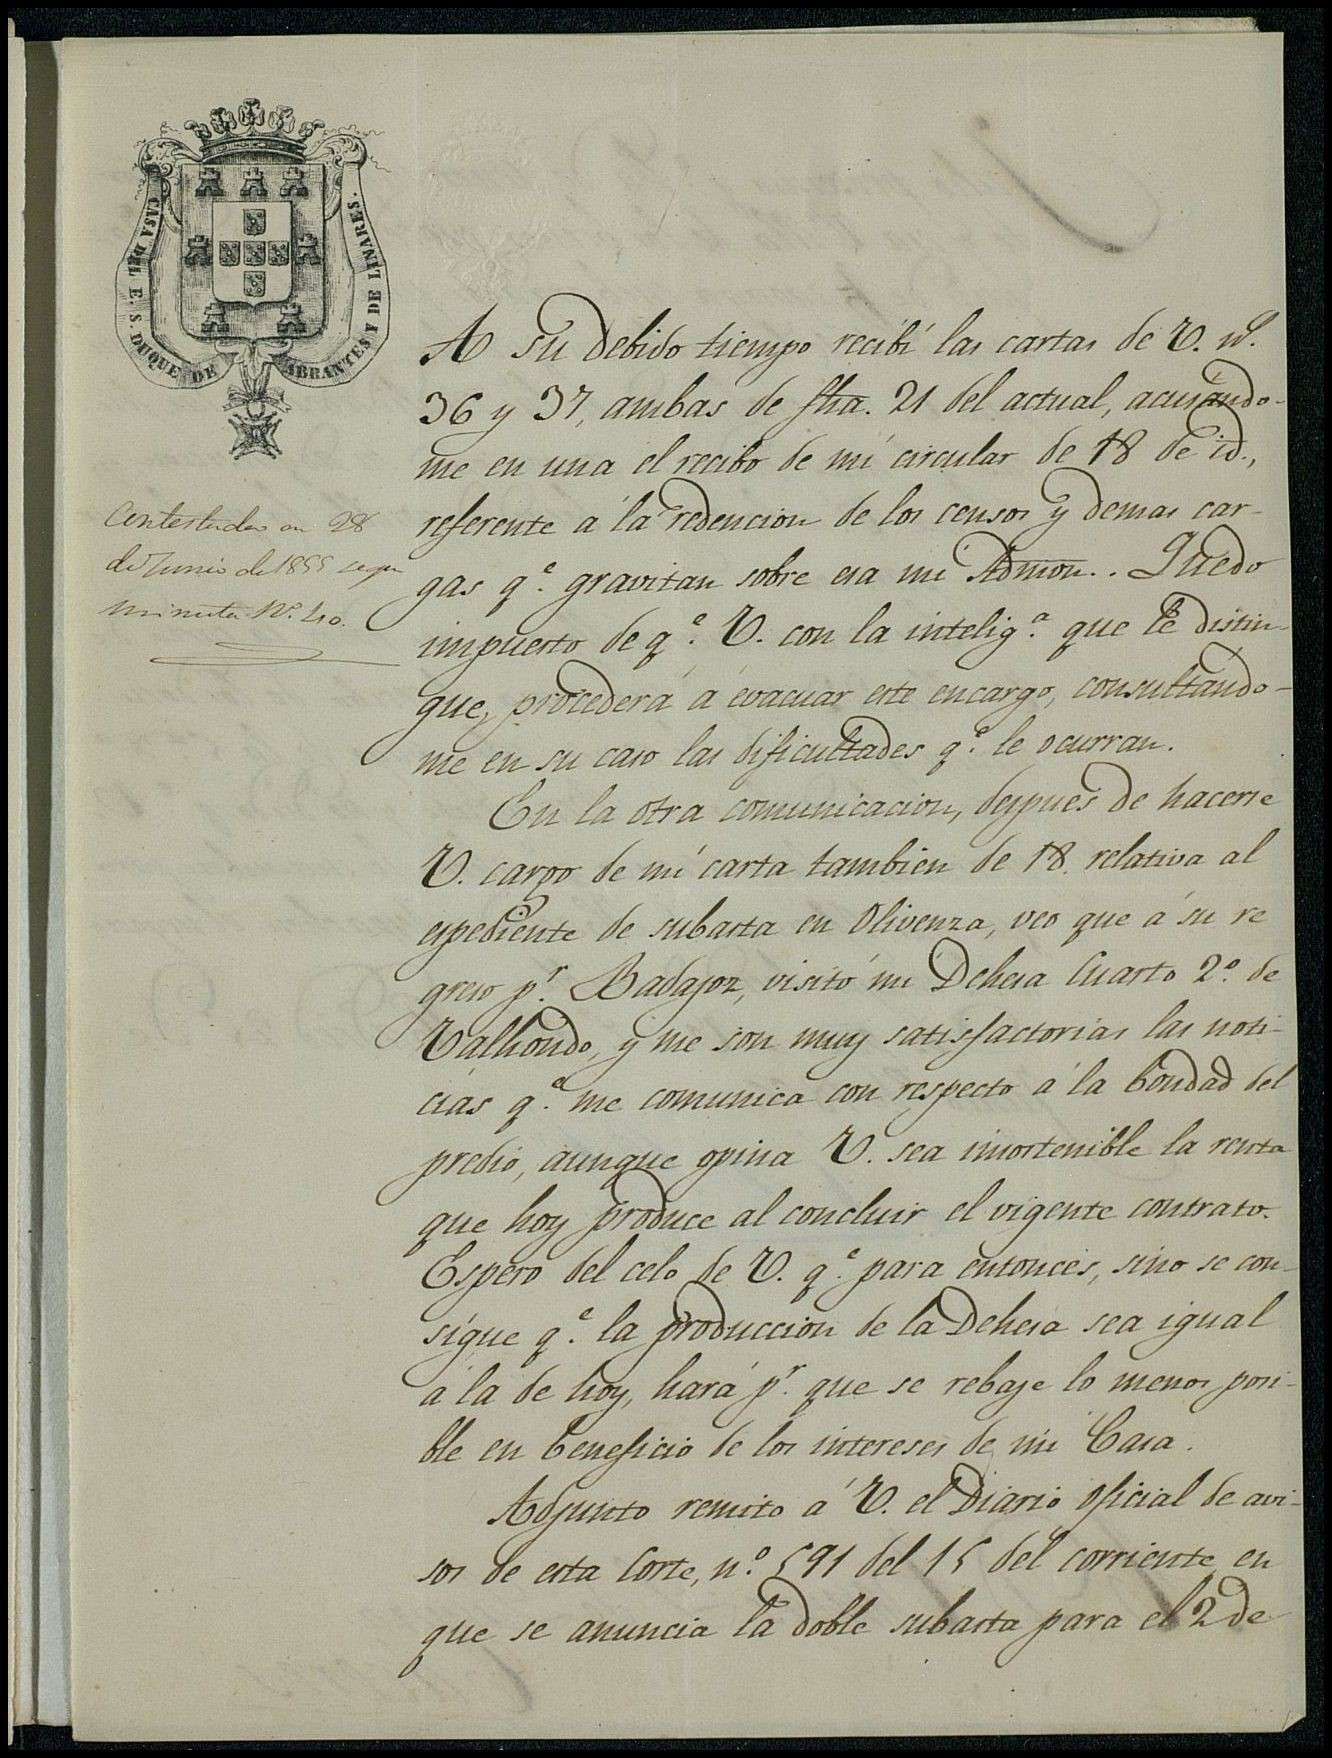 CASA DEL E. S. DUQUE DE ABRANTES Y DE LINARES.
Contestada en 28
de Junio de 1855 segun
minuta Nº. 40.
A su debido tiempo recibí las cartas de V. nº.
36 y 37, ambas de fha. 21 del actual, acusándo-
me en una el recibo de mi circular de 18 de id.,
referente á la redencion de los censos y demas car-
gas q.e gravitan sobre esa mi Admon.. Quedo
impuesto de q.e V. con la intelig.a que le distin-
gue, procederá á evacuar este encargo, consultándo-
me en su caso las dificultades q.e le ocurran.
En la otra comunicacion, despues de hacerse
V. cargo de mi carta tambien de 18. relativa al
espediente de subasta en Olivenza, veo que á su re
greso p.r Badajoz, visitó mi Dehesa Cuarto 2º. de
Valhondo, y me son muy satisfactorias las noti-
cias q.e me comunica con respecto á la bondad del
predio, aunque opina V. sea insostenible la renta
que hoy produce al concluir el vigente contrato.
Espero del celo de V. q.e para entonces, sino se con-
sigue q.e la produccion de la Dehesa sea igual
á la de hoy, hará p.r que se rebaje lo menos posi-
ble en beneficio de los intereses de mi Casa.
Adjunto remito á V. el Diario oficial de avi-
sos de esta Corte, nº. 591 del 15 del corriente en
que se anuncia la doble subasta para el 2 de